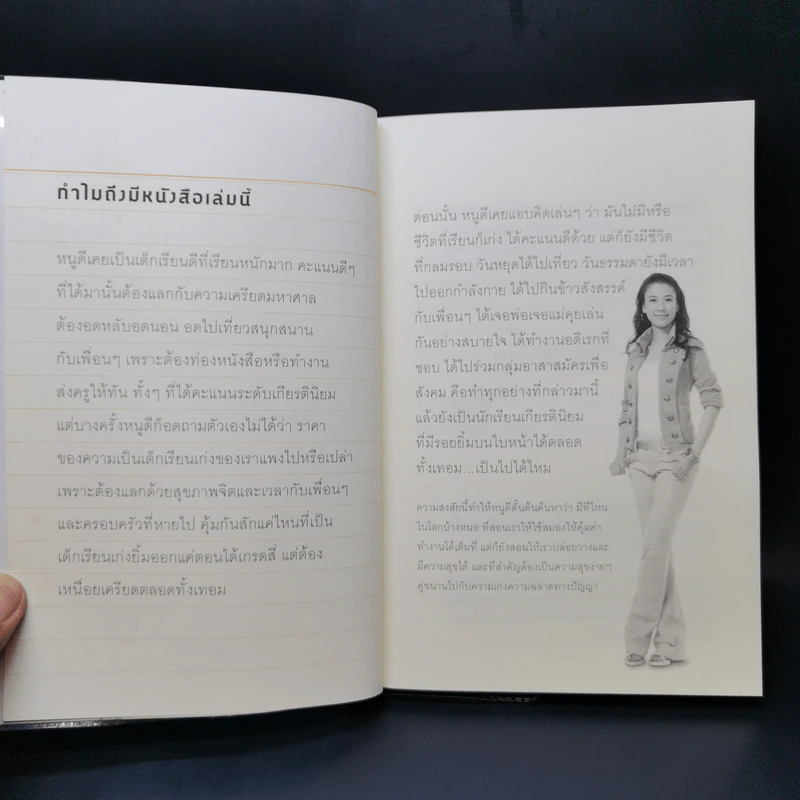 ทำไมถึงมีหนังสือเล่มนี้
หนูดีเคยเป็นเด็กเรียนดีที่เรียนหนักมาก คะแนนดีๆ
ที่ได้มานั้นต้องแลกกับความเครียดมหาศาล
ต้องอดหลับอดนอน อดไปเที่ยวสนุกสนาน
กับเพื่อนๆ เพราะต้องท่องหนังสือหรือทำงาน
ส่งครูให้ทัน ทั้งๆ ที่ได้คะแนนระดับเกียรตินิยม
แต่บางครั้งหนูดีก็อดถามตัวเองไม่ได้ว่า ราคา
ของความเป็นเด็กเรียนเก่งของเราแพงไปหรือเปล่า
เพราะต้องแลกด้วยสุขภาพจิตและเวลากับเพื่อนๆ
และครอบครัวที่หายไป คุ้มกันสักแค่ไหนที่เป็น
เด็กเรียนเก่งยิ้มออกแค่ตอนได้เกรดสี่ แต่ต้อง
เหนื่อยเครียดตลอดทั้งเทอม
ตอนนั้น หนูดีเคยแอบคิดเล่นๆ ว่า มันไม่มีหรือ
ชีวิตที่เรียนก็เก่ง ได้คะแนนดีด้วย แต่ก็ยังมีชีวิต
ที่กลมรอบ วันหยุดได้ไปเที่ยว วันธรรมดายังมีเวลา
ไปออกกำลังกาย ได้ไปกินข้าวสังสรรค์
กับเพื่อนๆ ได้เจอพ่อเจอแม่คุยเล่น
กันอย่างสบายใจ ได้ทำงานอดิเรกที่
ชอบ ได้ไปร่วมกลุ่มอาสาสมัครเพื่อ
สังคม คือทำทุกอย่างที่กล่าวมานี้
แล้วยังเป็นนักเรียนเกียรตินิยม
ที่มีรอยยิ้มบนใบหน้าได้ตลอด
ทั้งเทอม...เป็นไปได้ไหม
ความสงสัยนี้ทำให้หนูดีดั้นด้นค้นหาว่า มีที่ไหน
ในโลกบ้างหนอ ที่สอนเราให้ใช้สมองให้คุ้มค่า
ทำงานได้เต็มที่ แต่ก็ยังสอนให้เราปล่อยวางและ
มีความสุขได้ และที่สำคัญต้องเป็นความสุขง่ายๆ
คู่ขนานไปกับความเก่งความฉลาดทางปัญญา